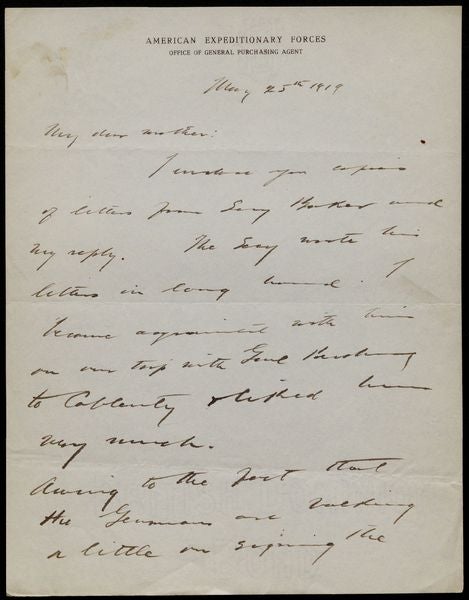 AMERICAN EXPEDITIONARY FORCES
OFFICE OF GENERAL PURCHASING AGENT
May 25th 1919
My dear mother:
I enclose you copies
of letters from Secy Baker and
my reply. The Secy wrote his
letters in long hand. I
became acquainted with him
on our trip with Genl Pershing
to Coblentz & liked him
very much.
Owing to the fact that
the Germans are balking
a little on signing the